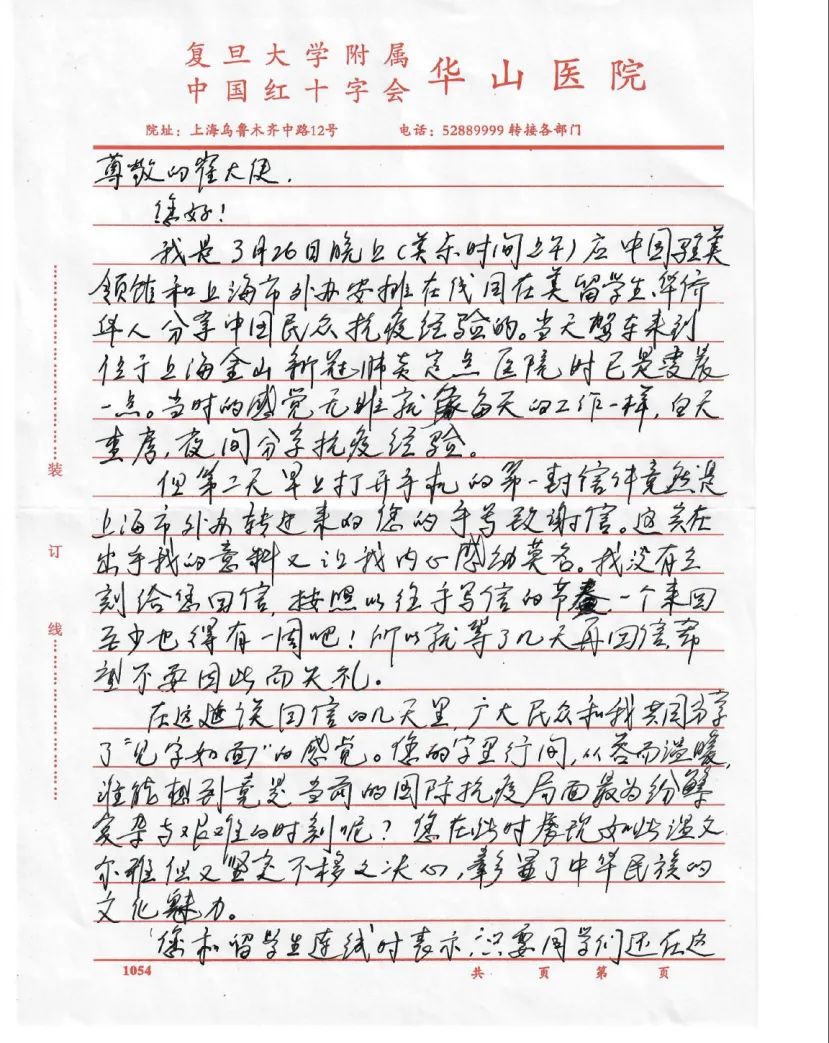 复旦大学附属
中国红十字会 华山医院
院址：上海乌鲁木齐中路12号 电话：52889999 转接各部门
尊敬的崔大使，
您好！
我是3月26日晚上（美东时间上午）应中国驻美
领馆和上海市外办安排在线同在美留学生、华侨
华人分享中国民众抗疫经验的。当天驾车来到
位于上海金山新冠肺炎定点医院时已是凌晨
一点。当时的感觉无非就像每天的工作一样，白天
查房，夜间分享抗疫经验。
但第二天早上打开手机的第一封信件竟然是
上海市外办转过来的您的手写致谢信。这实在
出乎我的意料又让我内心感动莫名。我没有立
刻给您回信，按照以往手写信的节奏，一个来回
至少也得有一周吧！所以就等了几天再回信，希
望不要因此而失礼。
在这延误回信的几天里，广大民众和我共同分享
了“见字如面”的感觉。您的字里行间，从容而温暖，
谁能想到竟是当前的国际抗疫局面最为纷繁
复杂与艰难的时刻呢？您在此时展现如此温文
尔雅但又坚定不移之决心，彰显了中华民族的
文化魅力。
您和留学生连线时表示，只要同学们还在这
装
订
线
1054 共 页 第 页